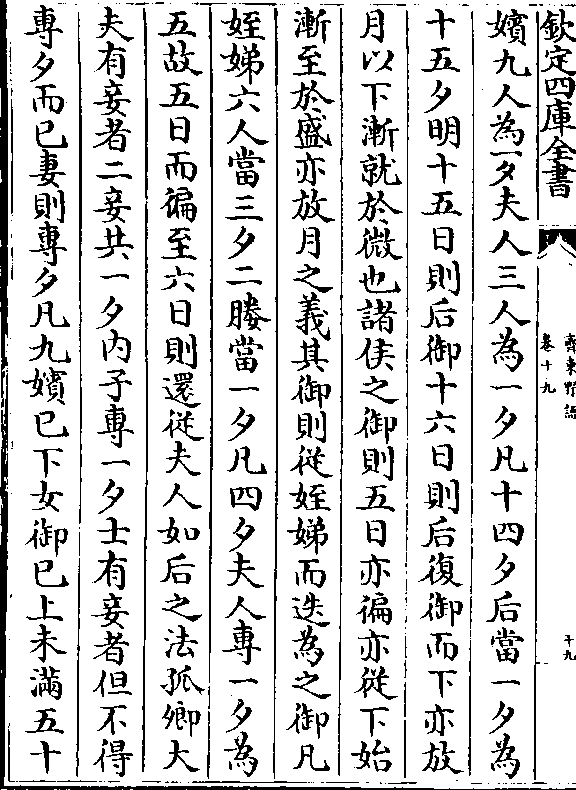 欽定四庫全書
齊東野語
卷十九
十九
嬪九人為一夕夫人三人為一夕凡十四夕后當一夕為
十五夕明十五日則后御十六日則后復御而下亦放
月以下漸就於微也諸侯之御則五日亦徧亦從下始
漸至於盛亦放月之義其御則從姪娣而迭為之御凡
姪娣六人當三夕二媵當一夕凡四夕夫人專一夕為
五故五日而徧至六日則還從夫人如后之法孤卿大
夫有妾者二妾共一夕内子專一夕士有妾者但不得
專夕而已妻則專夕凡九嬪已下女御已上未滿五十